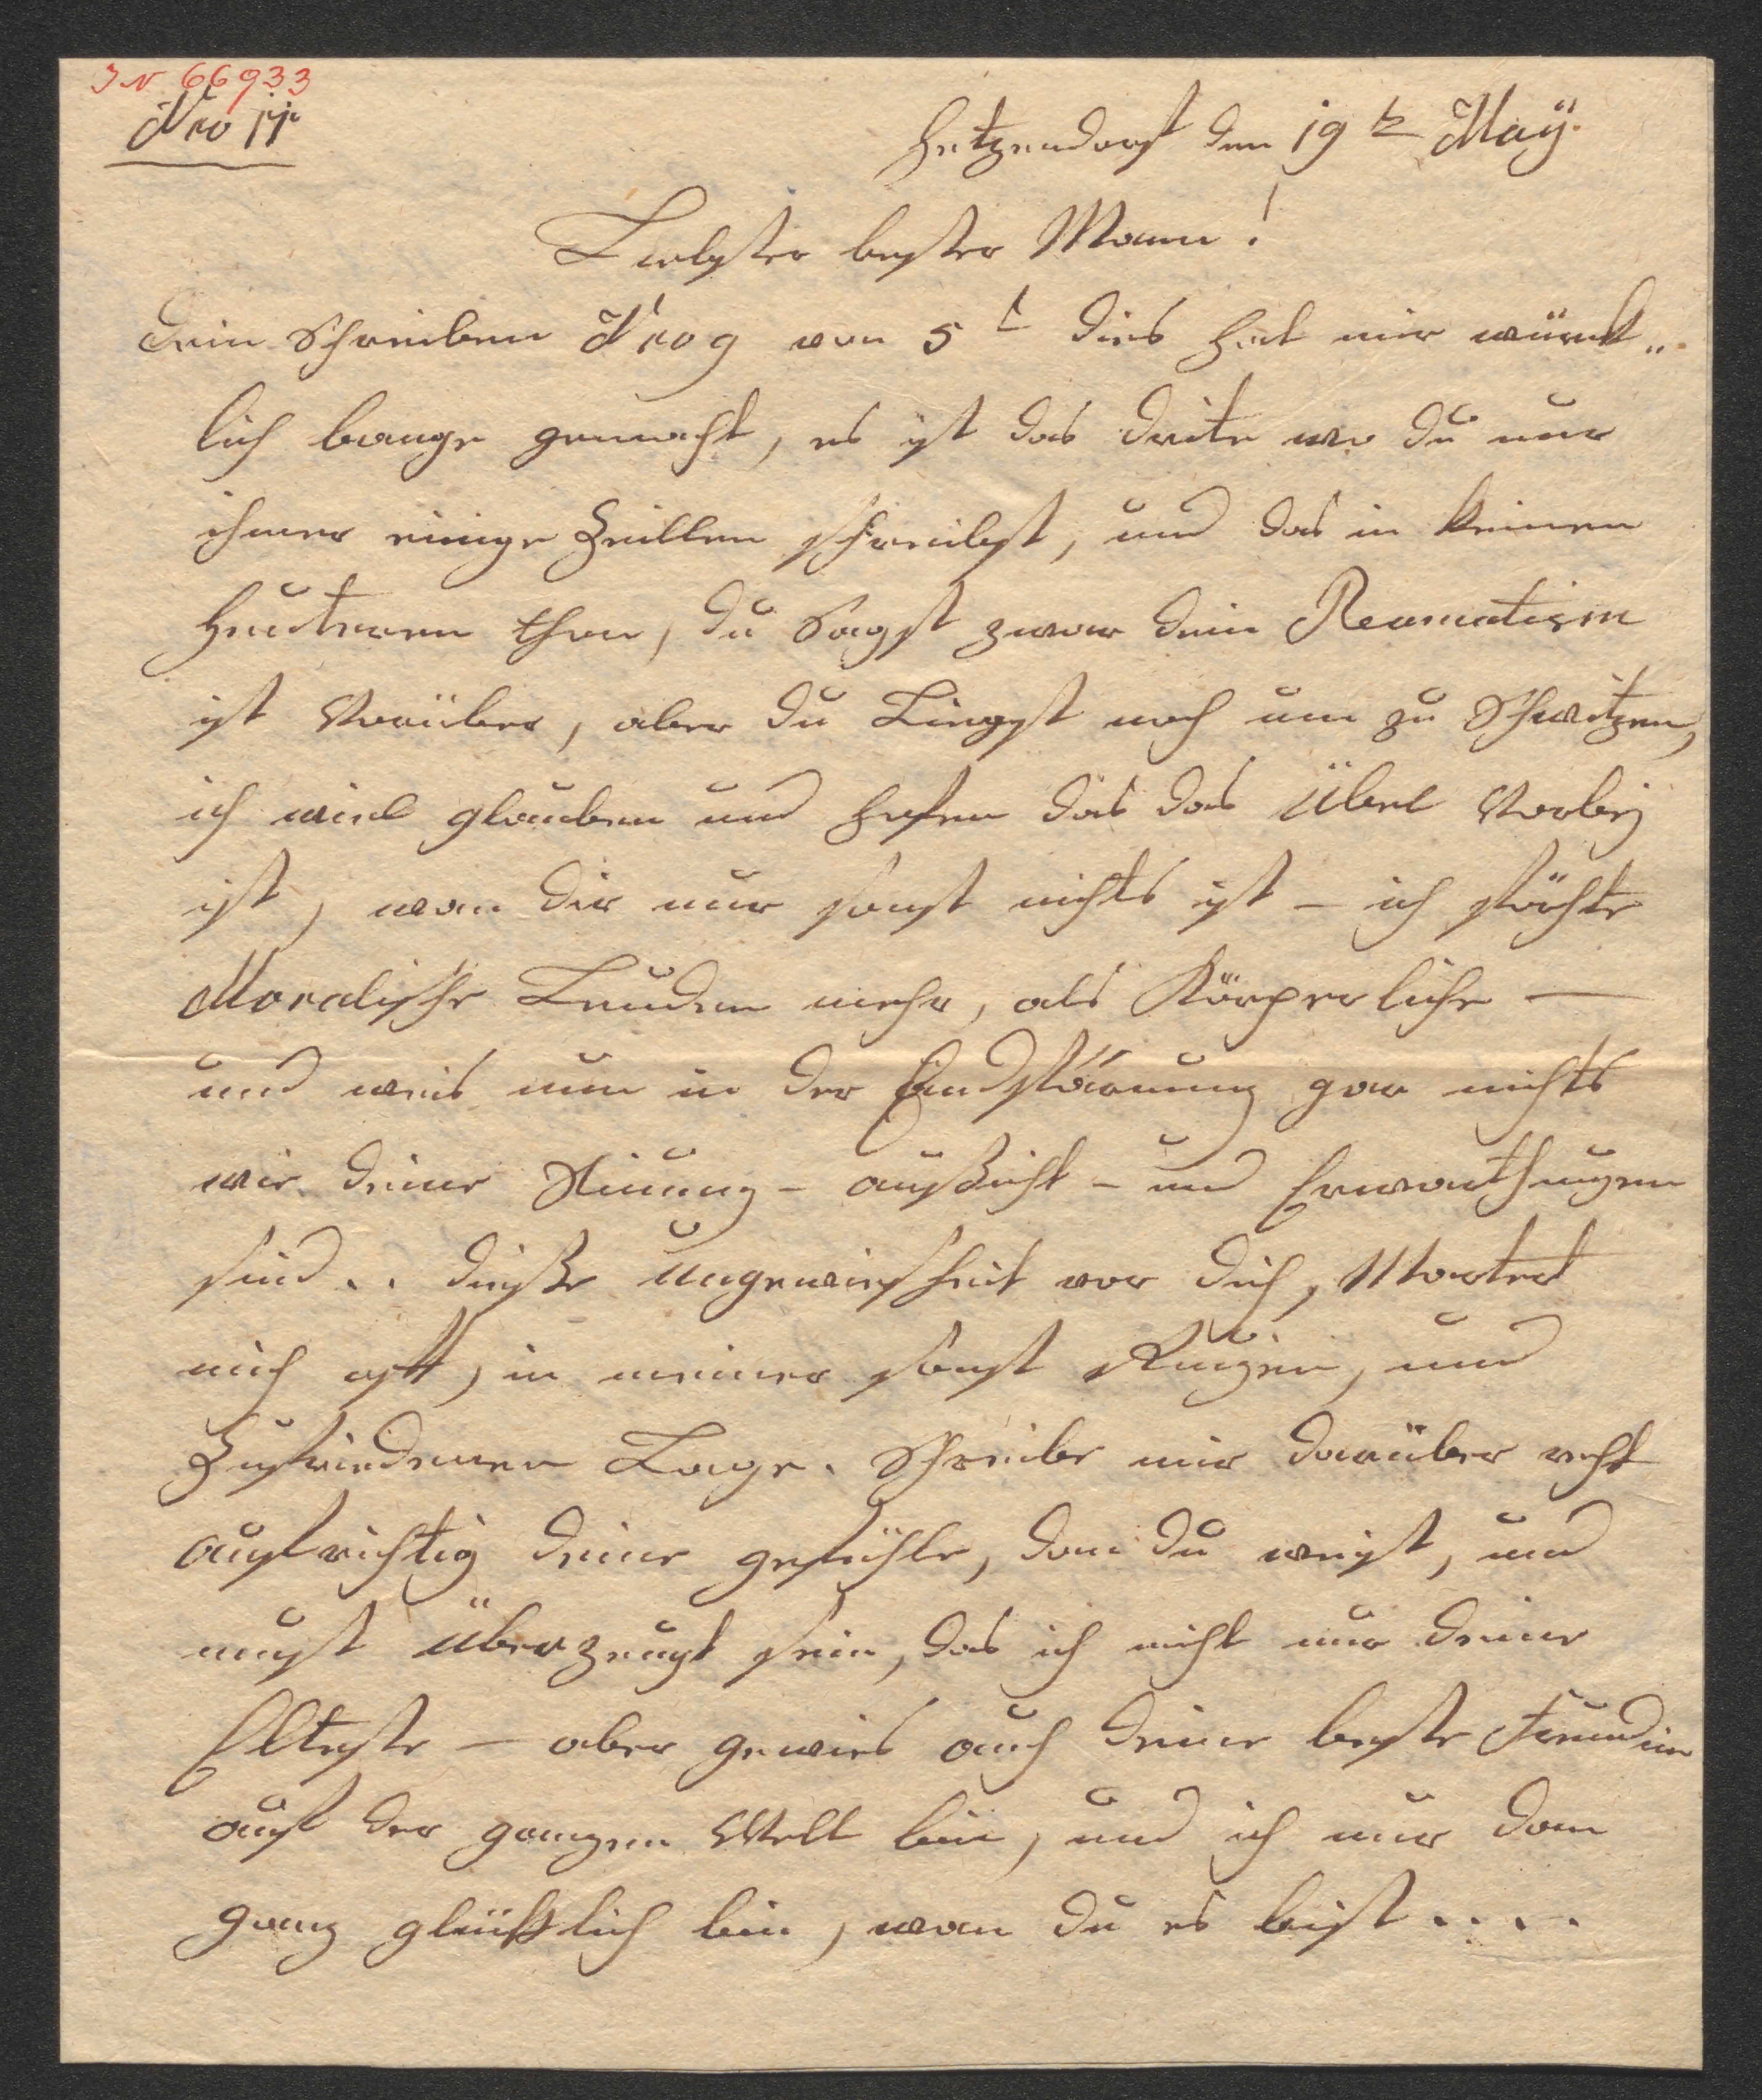 IN 66933
Nro 11
Hetzendorf den 19t May
Liebster bester Mann!
Dein Schreiben Nro 9 von 5t dies hat mir würck„
lich bange gemacht, es ist das drite wo du nur
ihmer einige Zeillen schreibst, und das in keinen
heuteren thon, du Sagst zwar dein Reomatism
ist Vorüber, aber du Liegst noch um zu Schwitzen,
ich wiel glauben und hofen das das Übel Vorbej
ist, wan dir nur sonst nichts ist – ich förchte
Moralische Leuden mehr, als Körperliche —
und weis nun in der Endfärnung gar nichts
wie deine Stimung – aussicht – und Erwarthungen
sind .. diese Ungewiesheit vor dich, Martert
mich oft, in meiner sonst Ruigen, und
Zufriedenen Lage. Schreibe mir darüber recht
aufrichtig deine gefühle, dan du weist, und
must überzeugt sein, das ich nicht nur deine
Elteste – aber gewies auch deine beste Freundin
auf der ganzen Welt bin, und ich nur dan
ganz glücklich bin, wan du es bist ....